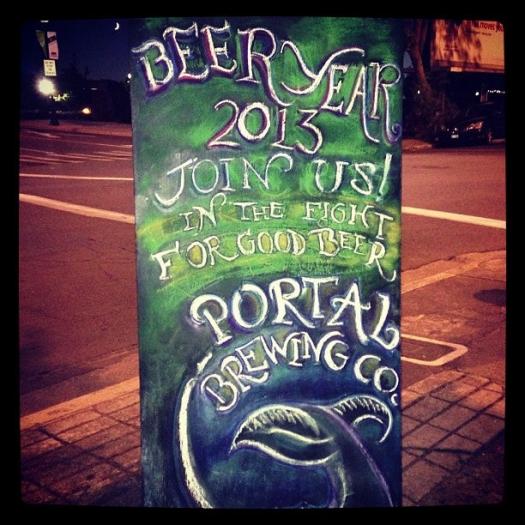 BEER YEAR
2013
JOIN US!
IN THE FIGHT
FOR GOOD BEER
PORTAL
BREWING CO.